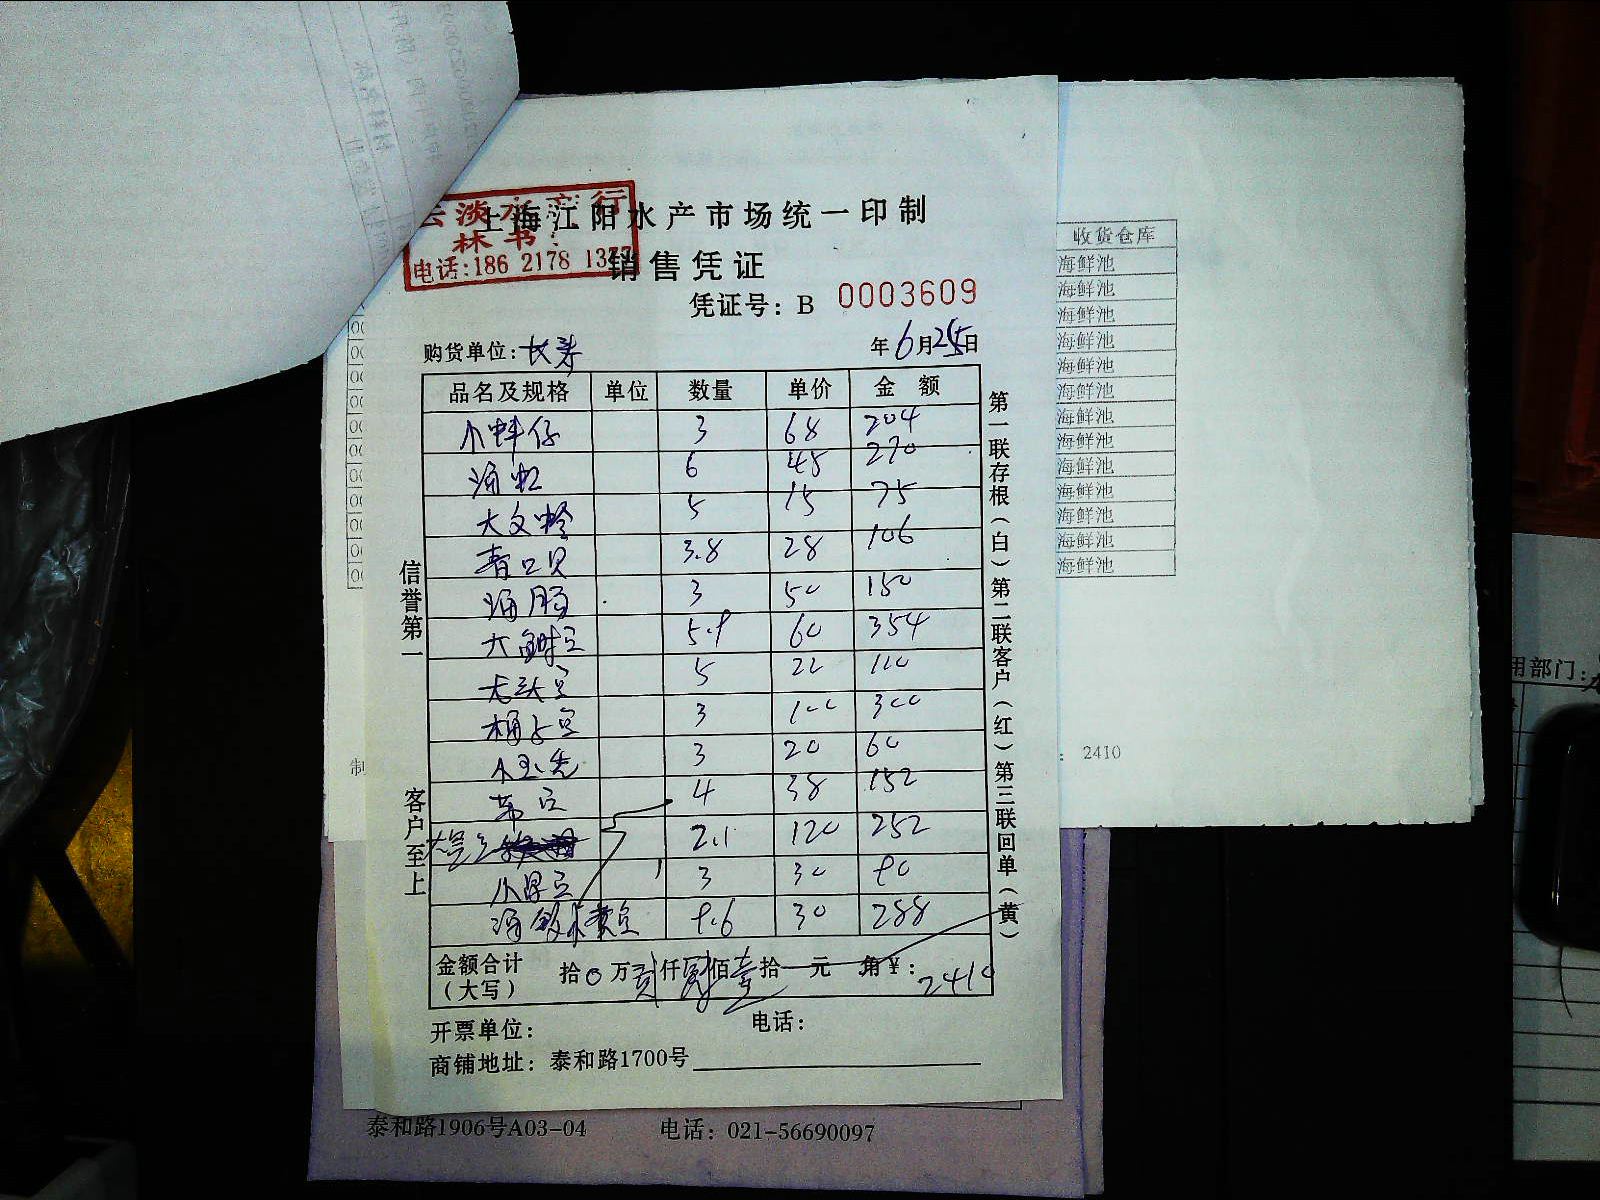 云淡水产行
林书:
电话:186 2178 1377
上海江阳水产市场统一印制
销售凭证
凭证号: B 0003609
购货单位: 长寿
年6月25日
品名及规格 单位 数量 单价 金额
小蚌仔 3 68 204
海虹 6 45 270
大文蛤 5 15 75
青口贝 3.8 28 106
海肠 3 50 150
5.9 60 354
5 22 110
3 100 300
3 20 60
4 38 152
2.1 120 252
3 30 90
9.6 30 288
金额合计
(大写)
拾0万贰仟肆佰壹拾一元 角¥: 2410
开票单位: 电话:
商铺地址: 泰和路1700号
信誉第一 客户至上
第一联存根(白) 第二联客户(红) 第三联回单(黄)
收货仓库
海鲜池
海鲜池
海鲜池
海鲜池
海鲜池
海鲜池
海鲜池
海鲜池
海鲜池
海鲜池
海鲜池
海鲜池
海鲜池
制
: 2410
用部门:
泰和路1906号A03-04 电话: 021-56690097